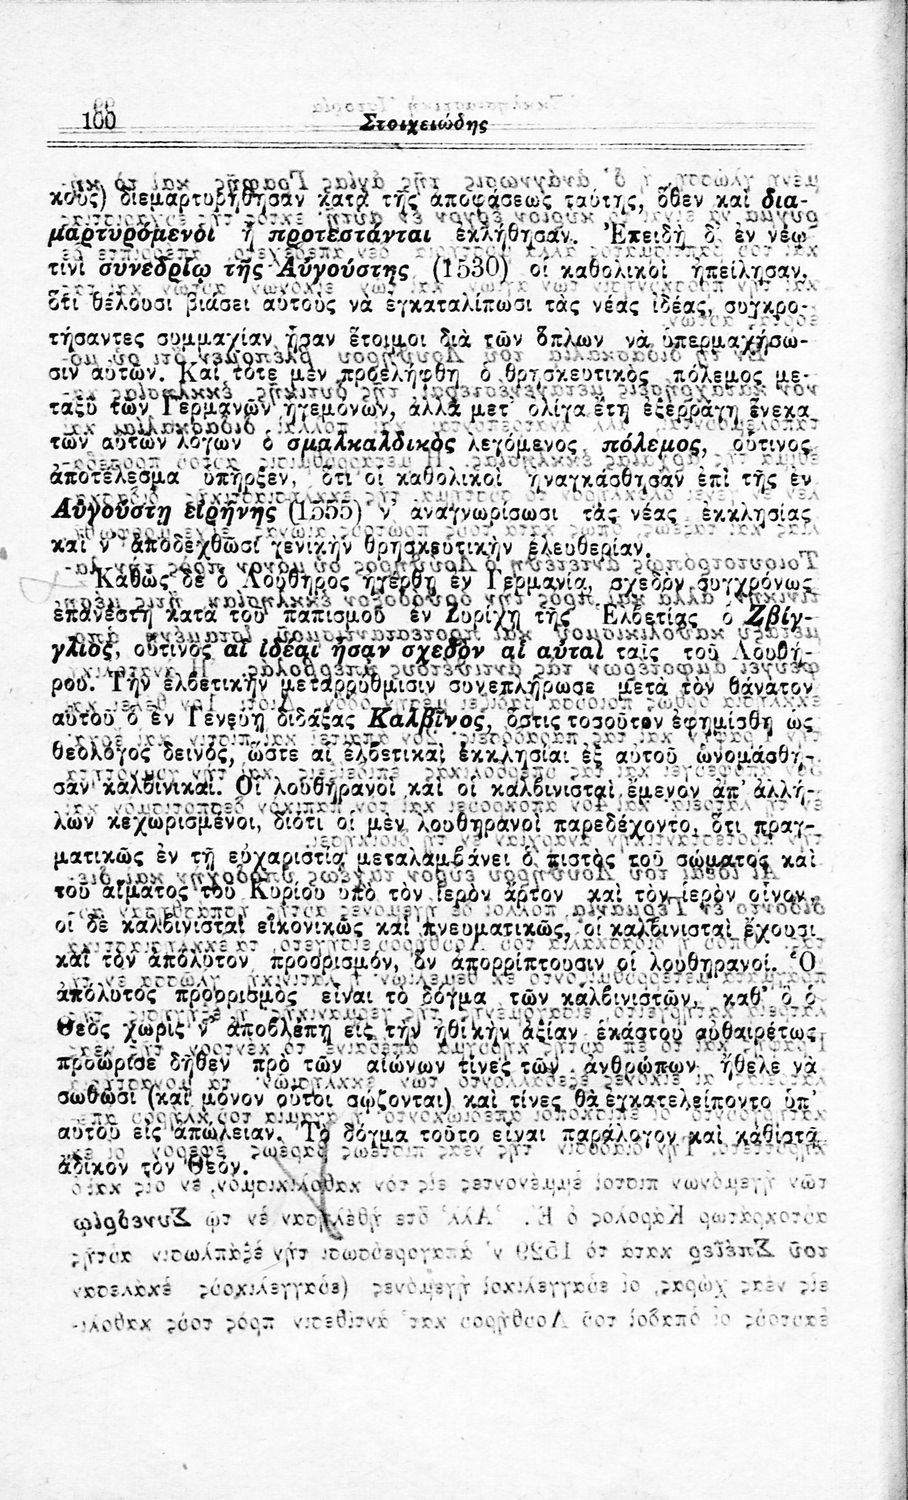 100
Στοιχειώδης
κούς) διεμαρτυρήθησαν κατὰ τῆς ἀποφάσεως ταύτης, ὅθεν καὶ δια-
μαρτυρόμενοι ἢ προτεστάνται ἐκλήθησαν. Ἐπειδὴ δ' ἐν νέῳ
τινὶ συνεδρίῳ τῆς Αὐγούστης (1530) οἱ καθολικοὶ ἠπείλησαν.
ὅτι θέλουσι βιάσει αὐτοὺς νὰ ἐγκαταλίπωσι τὰς νέας ἰδέας, συγκρο-
τήσαντες συμμαχίαν ἦσαν ἕτοιμοι διὰ τῶν ὅπλων νὰ ὑπερμαχήσω-
σιν αὐτῶν. Καὶ τότε μὲν προελήφθη ὁ θρησκευτικὸς πόλεμος με-
ταξὺ τῶν Γερμανῶν ἡγεμόνων, ἀλλὰ μετ' ὀλίγα ἔτη ἐξερράγη ἕνεκα
τῶν αὐτῶν λόγων ὁ σμαλκαλδικὸς λεγόμενος πόλεμος, οὗτινος
ἀποτέλεσμα ὑπῆρξεν, ὅτι οἱ καθολικοὶ ἠναγκάσθησαν ἐπὶ τῆς ἐν
Αὐγούστῃ εἰρήνης (1555) ν' ἀναγνωρίσωσι τὰς νέας ἐκκλησίας
καὶ ν' ἀποδεχθῶσι γενικὴν θρησκευτικὴν ἐλευθερίαν.
Καθὼς δὲ ὁ Λούθηρος ἠγέρθη ἐν Γερμανίᾳ, σχεδὸν συγχρόνως
ἐπανέστη κατὰ τοῦ παπισμοῦ ἐν Ζυρίχῃ τῆς Ἑλβετίας ὁ Ζβίγ-
γλιος, οὗτινος αἱ ἰδέαι ἦσαν σχεδὸν αἱ αὐταὶ ταῖς τοῦ Λουθή-
ρου. Τὴν ἑλβετικὴν μεταρρύθμισιν συνεπλήρωσε μετὰ τὸν θάνατον
αὐτοῦ ὁ ἐν Γενεύῃ διδάξας Καλβῖνος, ὅστις τοσοῦτον ἐφημίσθη ὡς
θεολόγος δεινός, ὥστε αἱ ἑλβετικαὶ ἐκκλησίαι ἐξ αὐτοῦ ὠνομάσθη-
σαν καλβινικαί. Οἱ λουθηρανοὶ καὶ οἱ καλβινισταὶ ἔμενον ἀπ' ἀλλή-
λων κεχωρισμένοι, διότι οἱ μὲν λουθηρανοὶ παρεδέχοντο, ὅτι πραγ-
ματικῶς ἐν τῇ εὐχαριστίᾳ μεταλαμβάνει ὁ πιστὸς τοῦ σώματος καὶ
τοῦ αἵματος τοῦ Κυρίου ὑπὸ τὸν ἱερὸν ἄρτον καὶ τὸν ἱερὸν οἶνον,
οἱ δὲ καλβινισταὶ εἰκονικῶς καὶ πνευματικῶς, οἱ καλβινισταὶ ἔχουσι
καὶ τὸν ἀπόλυτον προορισμόν, ὃν ἀπορρίπτουσιν οἱ λουθηρανοί. Ὁ
ἀπόλυτος προορισμὸς εἶναι τὸ δόγμα τῶν καλβινιστῶν, καθ' ὃ ὁ
Θεὸς χωρὶς ν' ἀποβλέπῃ εἰς τὴν ἠθικὴν ἀξίαν ἑκάστου αὐθαιρέτως
προώρισε δῆθεν πρὸ τῶν αἰώνων τίνες τῶν ἀνθρώπων ἤθελε νὰ
σωθῶσι (καὶ μόνον οὗτοι σῴζονται) καὶ τίνες θὰ ἐγκατελείποντο ὑπ'
αὐτοῦ εἰς ἀπώλειαν. Τὸ δόγμα τοῦτο εἶναι παράλογον καὶ καθιστᾷ
ἄδικον τὸν Θεόν.